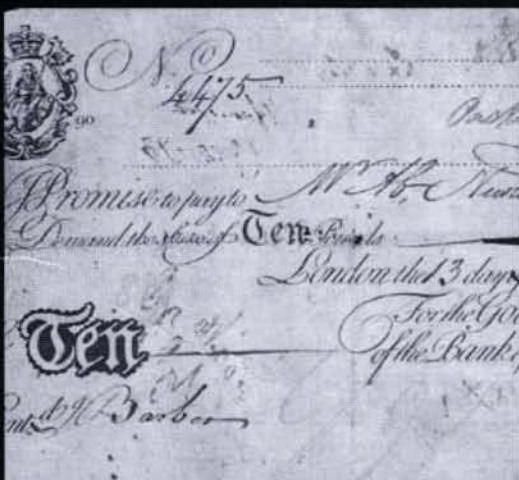 No
4475
90
I Promise to pay to Mr Ab.
Demand the Sum of Ten Pounds
London the 13 day
For the Go
Ten of the Bank
Ent d J Barber